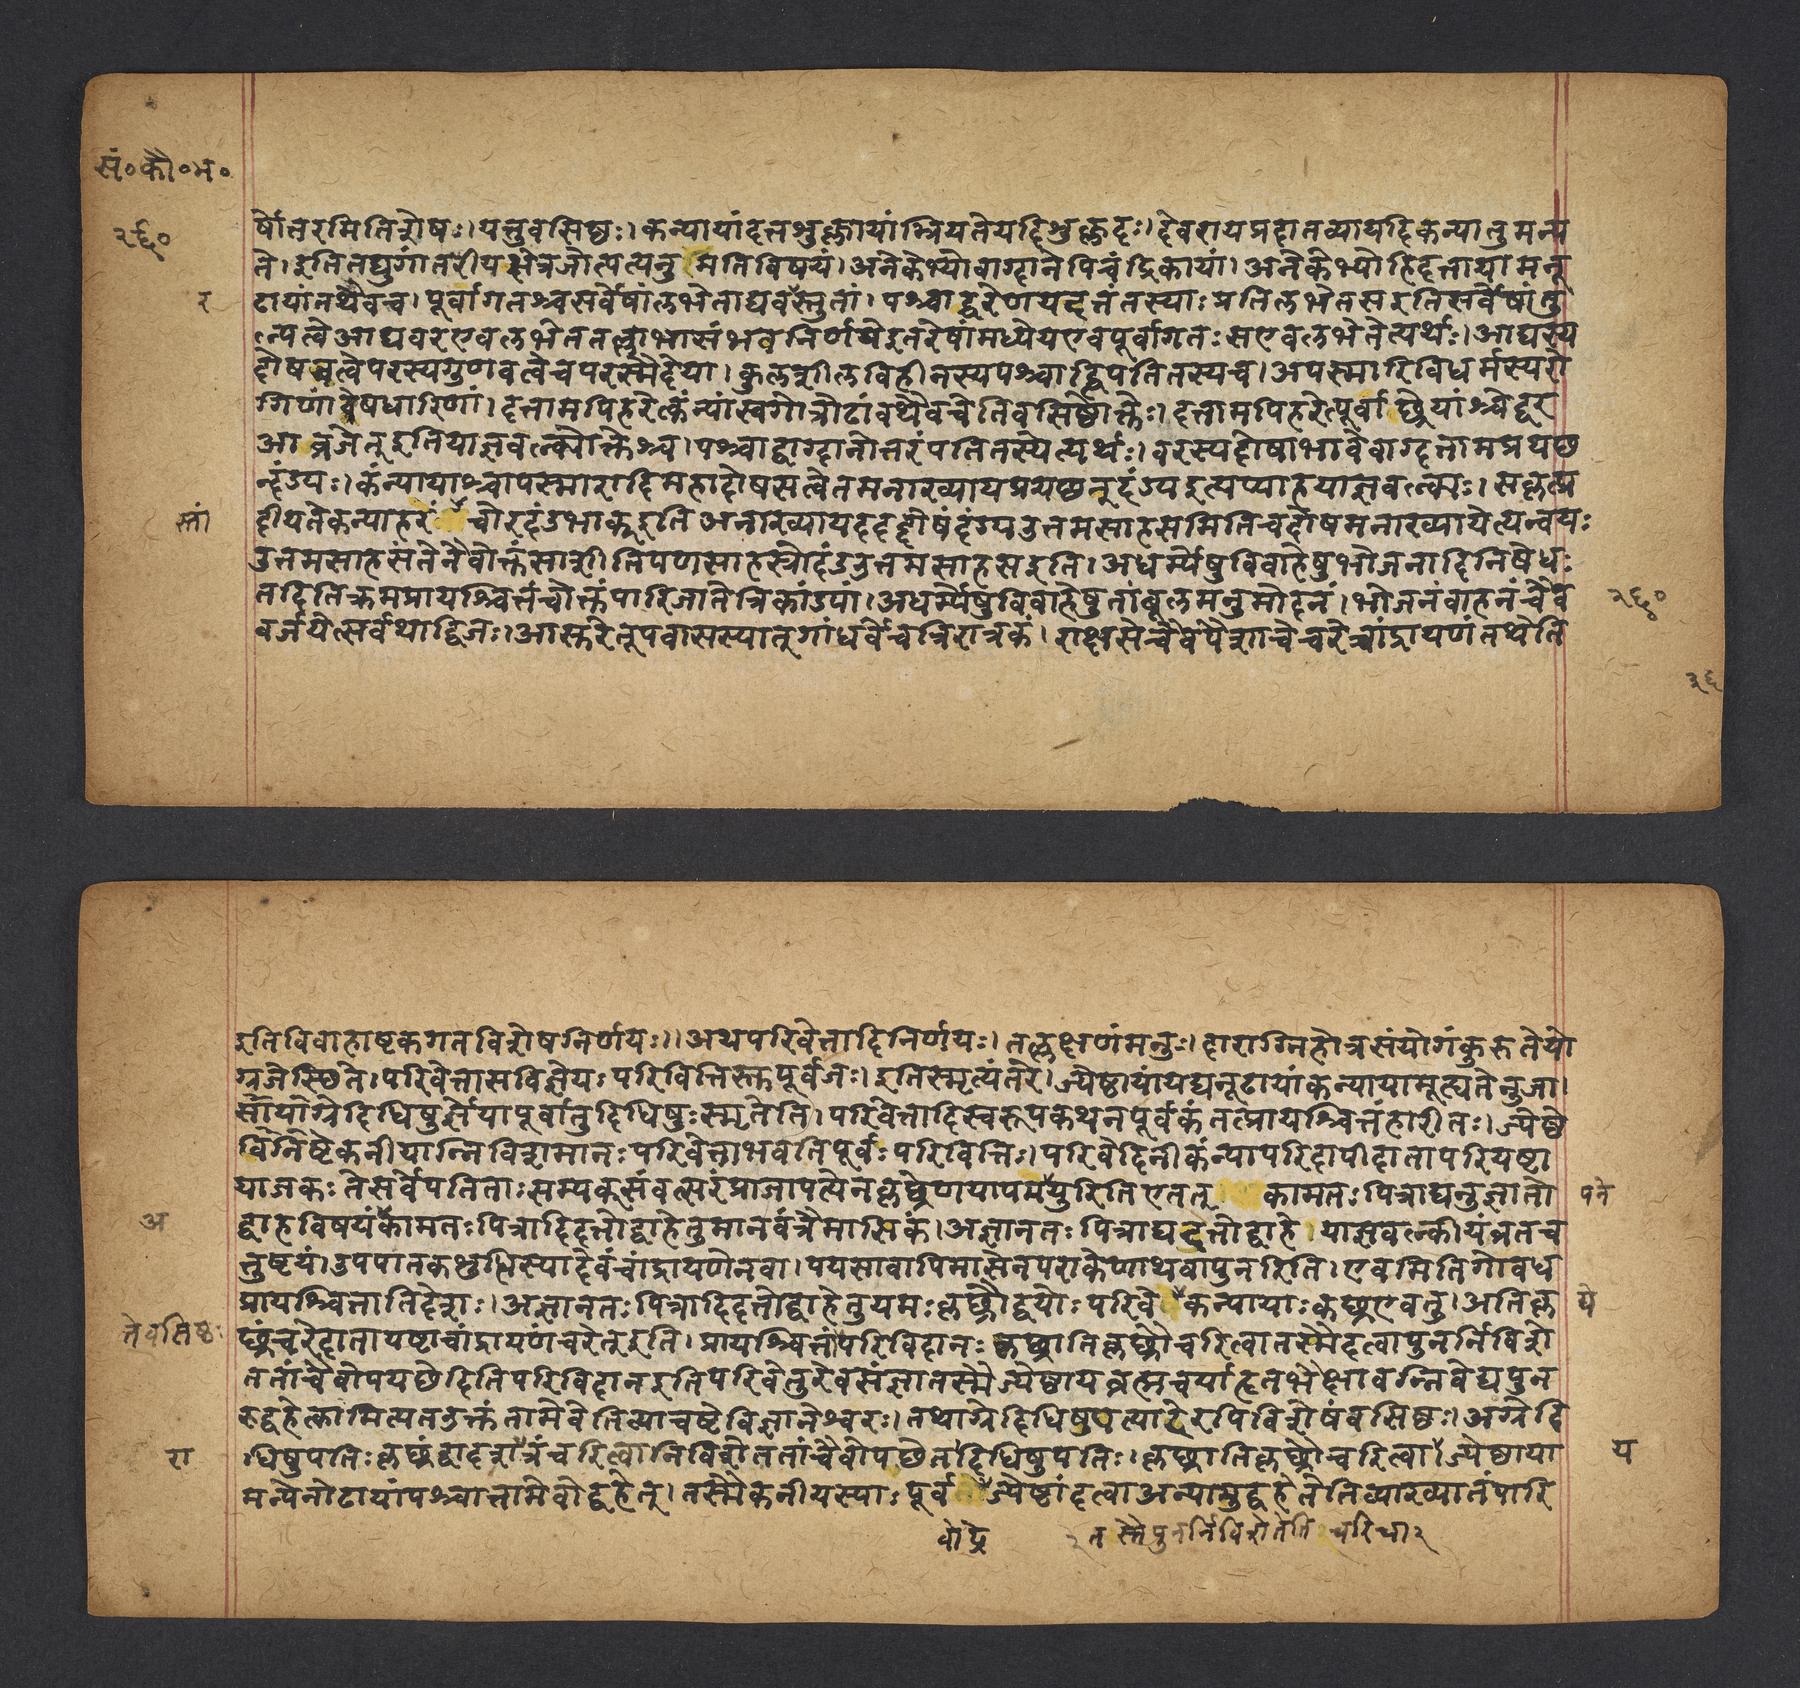 सं०कौ०म०
२६०
र्षोत्तरमितिशेषः। यत्तुवसिष्ठः। कन्यायांदत्तशुल्कायांम्रियतेयदिशुल्कदः। देवरायप्रदातव्यायदिकन्यानुमन्य
ते। इतितद्युगांतरीयक्षेत्रजोत्पत्यनुमतिविषयं। अनेकेभ्योवाग्दानेपिचंद्रिकायां। अनेकेभ्योहिदत्तायामनू
ढायांतथैवच। पूर्वागतश्चसर्वेषांलभेताद्यवस्तुतां। पश्चाद्वरेणयद्दत्तंतस्याः प्रतिलभेतसइतिसर्वेषांतु
र
ल्पत्वेआद्यवरएवलभेततल्लाभासंभवनिर्णयेइतरेषांमध्येयएवपूर्वागतः सएवलभेतेत्यर्थः। आद्यस्य
दोषवत्वेपरस्यगुणवत्वेचपरस्मैदेया। कुलशीलविहीनस्यपश्चाद्विपतितस्यच। अपस्मारिविधर्मस्यरो
गिणांवेषधारिणां। दत्तामपिहरेत्कंन्यांस्वगोत्रोढांवथैवचेतिवसिष्ठोक्तेः। दत्तामपिहरेत्पूर्वाछ्रेयांश्चेद्वर
आव्रजेत्तुइतियाज्ञवल्क्योक्तेश्च। पश्चाद्वाग्दानोत्तरंपतितस्येत्यर्थः। वरस्यदोषाभावेवाग्दत्तामप्रयछ
न्दंड्यः। कंन्यायाश्चापस्मारादिमहादोषसत्वेतमनाख्यायप्रयछन्नुदंड्यइत्यप्याहयाज्ञवल्क्यः। सकृत्प्र
दीयतेकन्याहरंचोरदंडभाक्इतिअनाख्यायददद्दोषंदंड्यउत्तमसाहसमितिचदोषमनाख्यायेत्यन्वयः
स्तां
उत्तमसाहसंतेनैवोक्तंसाशीतिपणसाहस्त्रोदंडउत्तमसाहसइति। अधर्म्येषुविवाहेषुभोजनादिनिषेधः
तदितिक्रमप्रायश्चित्तंचोक्तंपारिजातेत्रिकांड्यां। अधर्म्येषुविवाहेषुतांबूलमनुमोदनं। भोजनंवाहनंचैव
२६०
वर्जयेत्सर्वथाद्विजः। आस्तरेतूपवासस्यात्तुगांधर्वेचत्रिरात्रकं। राक्षसेचैवपैशाचेचरेच्चांद्रायणंतथेति
२६
इतिविवाहाष्टकगतविशेषनिर्णयः।। अथपरिवेत्तादिनिर्णयः। तल्लक्षणंमनुः। दाराग्निहोत्रसंयोगंकुरुतेयो
ग्रजेस्छिते। परिवेत्तासविज्ञेयः परिवित्तिस्त्तपूर्वजः। इतिस्मृत्यंतरे। ज्येष्ठायांयद्यनूढायांकन्यायामूत्द्यतेनुजा।
सायाग्रेदिधिषुर्ज्ञेयापूर्वातुदिधिषुःस्मृतेति। परिवेत्तादिस्वरूपकथनपूर्वकंतत्प्रायश्चित्तंहारीतः। ज्येष्ठे
विनिष्टेकनीयान्निविशमानः परिवेत्ताभवतिपूर्वः परिवित्तिः। परिवेदिनीकंन्यापरिदायीदातापरियष्टा
याजकः तेसर्वेपतिताः सम्यक्संवत्सरंप्राजापत्येनकृछ्रेणयापयेयुरितिएतत्तुकामतः पित्राद्यनुज्ञातो
पते
द्वाहविषयंकामतः पित्रादिदत्तोद्वाहेतुमानवंत्रैमासिकं। अज्ञानतः पित्राद्यदत्तोद्वाहे। याज्ञवल्कीयंव्रतच
अ
तुष्टयं। उपपातकशुद्धिस्यादेवंचांद्रायणेनवा। पयसावापिमासेनपराकेणाथवापुनरिति। एवमितिगोवध
प्रायश्चित्तातिदेशः। अज्ञानतः पित्रादिदत्तोद्वाहेतुयमः कृछ्रौद्वयोः परिवेकन्यायाः कृछ्रएवतु। अतिकृ
ये
छ्रंचरेद्दातायष्टाचांद्रायणंचरेत्इति। प्रायश्चित्तंपरिविदानः कृछ्रातिकृछ्रौचरित्वातस्मैदत्वापुनर्निविशे
तेवसिष्ठः
ततांचैवोपयछेदितिपरिविदानइतिपरिवेत्तुरेवसंज्ञातस्मैज्येष्ठायब्रह्मचर्याहृतभैक्षावन्निवेद्यपुन
रुद्वहेत्कामित्यतउक्तंतामेवेतित्याचष्टेविज्ञानेश्वरः। तथाग्रेदिधिषुपत्यादेरपिविशेषंवसिष्ठः। अग्रेदि
धिषुपतिः कृछ्रंद्वादशरात्रंचरित्वानिविशेततांचैवोपयछेतदिधिषुपतिः। कृछ्रातिकृछ्रौचरित्वाज्येष्ठाया
रा
य
मन्येनोढायांपश्चात्तामेवोद्वहेत्। तस्मैकनीयस्याः पूर्वज्येष्ठांदत्वाअन्यामुद्वहेतेतिव्याख्यातंपारि
वोद्रे
२तस्मैपुनर्निविशेतेति